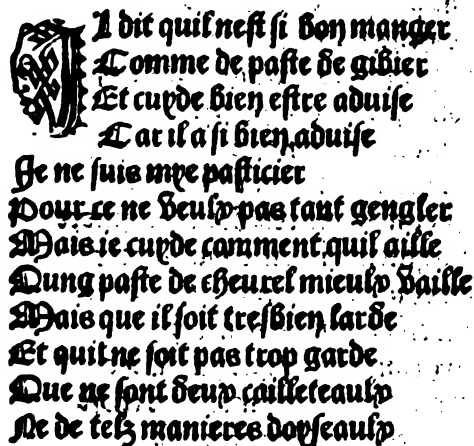 Il dit quil nest si bon manger
Comme de paste de gibier
Et cuyde bien estre aduise
Car il a si bien aduise
Je ne suis mye pasticier
Pour ce ne veulx pas tant gengler
Mais ie cuyde comment quil aille
Qung paste de cheurel mieulx vaille
Mais que il soit tresbien larde
Et quil ne soit pas trop garde
Que ne font deux cailleteaulx
Ne de telz manieres doyseaulx